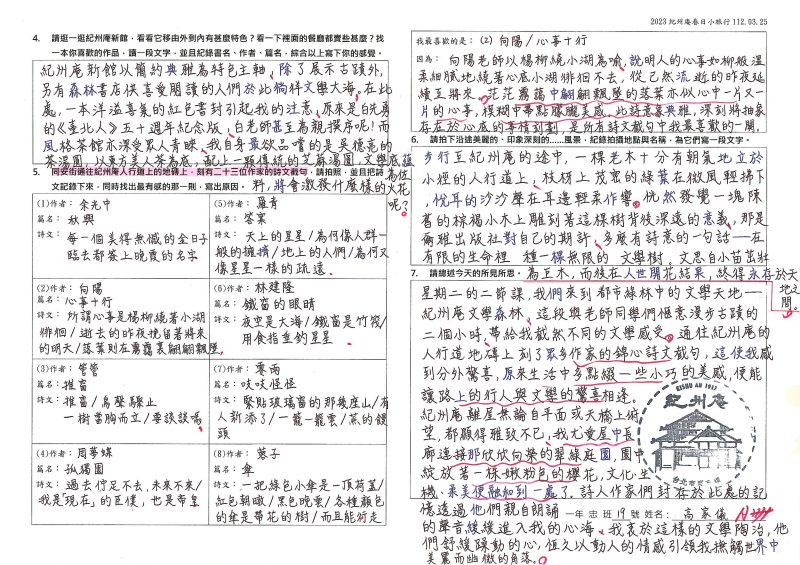 2023 紀州庵春日小旅行 112.03.25
4. 請逛一逛紀州庵新館，看看它移由外到內有甚麼特色？看一下裡面的餐廳都賣些甚麼？找
一本你喜歡的作品，讀一段文字，並且紀錄書名、作者、篇名，綜合以上寫下你的感覺。
紀州庵新館以簡約典雅為特色主軸，除了展示古蹟外，
另有森林書店供喜愛閱讀的人們於此徜徉文學大海。在此
處，一本洋溢喜氣的紅色書封引起我的注意，原來是白先勇
的《臺北人》五十週年紀念版，白老師甚至為親撰序呢！而
風格茶館亦深受眾人青睞，我自身最欲品嚐的是吳德亮的
茶湯圓，以東方美人茶為底，配上一顆傳統的芝麻湯圓，文學底蘊
為佐
料，將會激發什麼樣的火花
呢？
5. 同安街通往紀州庵人行道上的地磚上，刻有二十三位作家的詩文截句，請拍照，並且把詩
文記錄下來，同時找出最有感的那一則，寫出原因。
(1)作者：余光中
篇名：秋興
詩文：每一個美得無憾的全日子
臨去都蓋上晚霞的名字
(2)作者：向陽
篇名：心事十行
詩文：所謂心事是楊柳繞著小湖
徘徊/逝去的昨夜挽留著將來
的明天/落葉則在霧靄裏翩翩飄墜
(3)作者：管管
篇名：推窗
詩文：推窗/鳥聲驟止
一樹當胸而立/要談談嗎
(4)作者：周夢蝶
篇名：孤獨國
詩文：過去佇足不去，未來不來/
我是「現在」的臣僕，也是帝皇
(5)作者：羅青
篇名：答案
詩文：天上的星星/為何像人群一
般的擁擠/地上的人們/為何又
像星星一樣的疏遠
(6)作者：林建隆
篇名：鐵窗的眼睛
詩文：夜空是大海/鐵窗是竹筏/
用食指垂釣星星
(7)作者：零雨
篇名：吱吱怪怪
詩文：緊貼玻璃窗的那幾座山/有
人新添了/一籠一籠雲/蒸的饅
頭
(8)作者：蓉子
篇名：傘
詩文：一把綠色小傘是一頂荷蓋/
紅色朝暾/黑色晚雲/各種顏色
的傘是帶花的樹/而且能行走
我最喜歡的是：(2) 向陽/心事十行
因為：向陽老師以楊柳繞小湖為喻，說明人的心事如柳般溫
柔細膩地繞著心底小湖徘徊不去，從已然流逝的昨夜延
續至將來。茫茫霧靄中翩翩飄墜的落葉亦似心中一片又一
片的心事，模糊中帶點朦朧美感，此詩意象典雅，深刻將抽象
存在於心底的事情刻劃，是所有詩文截句中我最喜歡的一則。
6. 請拍下沿途美麗的、印象深刻的……風景，紀錄拍攝地點與名稱，為它們寫一段文字。
步行至紀州庵的途中，一棵老木十分有朝氣地立於
小徑的人行道上，枝梢上茂密的綠葉在微風輕掃下
，悅耳的沙沙聲在耳邊輕柔作響。恍然發覺一塊陳
舊的棕褐小木上雕刻著這棵樹背後深遠的意義，那是
爾雅出版社對自己的期許，多麼有詩意的一句話——在
有限的生命裡 種一棵無限的 文學樹，文思自小苗茁壯
為巨木，而後在人世開花結果，終得永存於天
地之
間。
7. 請總述今天的所見所思。
星期二的二節課，我們來到都市綠林中的文學天地——
紀州庵文學森林，這段與老師同學們愜意漫步古蹟的
二個小時，帶給我截然不同的文學感受。通往紀州庵的
人行道地磚上刻了眾多作家的錦心詩文截句，這使我感
到分外驚喜，原來生活中多點綴一些小巧的美感，便能
讓路上的行人與文學的驚喜相逢。
紀州庵離屋無論自平面或天橋上俯
望，都顯得雅致不已，我尤愛屋中長
廊連接那欣欣向榮的翠綠庭園，園中
綻放著一株嫩粉色的櫻花，文化、生
機、柔美便融和到一處了，詩人作家們封存於此處的記
憶透過他們親自朗誦
的聲音緩緩進入我的心海，我哀於這樣的文學陶冶，他
們舒緩躁動的心，恆久以動人的情感引領我撫觸世界中
美麗而幽微的角落。
KISHU AN 1917
紀州庵
一年 忠 班 19 號 姓名： 高家儀